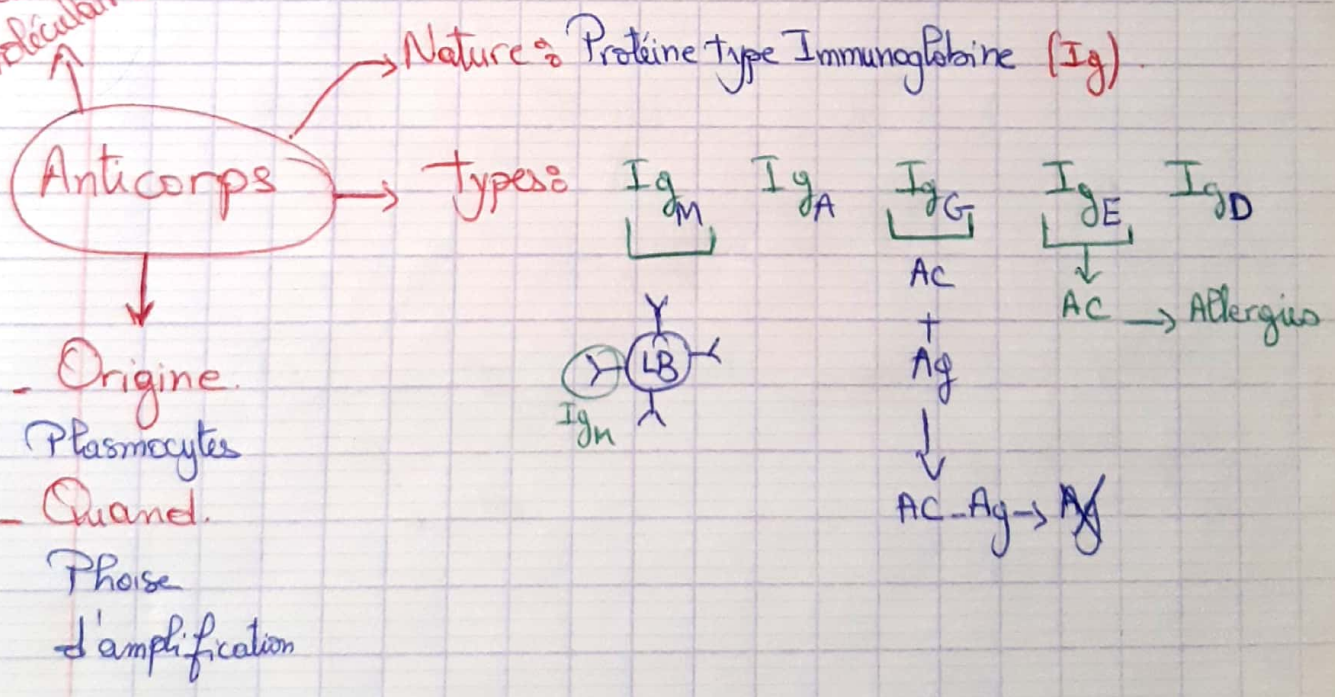 Nature : Protéine type Immunoglobine (Ig).
Anticorps
Types : IgM IgA IgG IgE IgD
AC
+
Ag
AC → Allergies
LB
IgM
AC-Ag → Ag
- Origine.
Plasmocytes
- Quand.
Phase
d'amplification